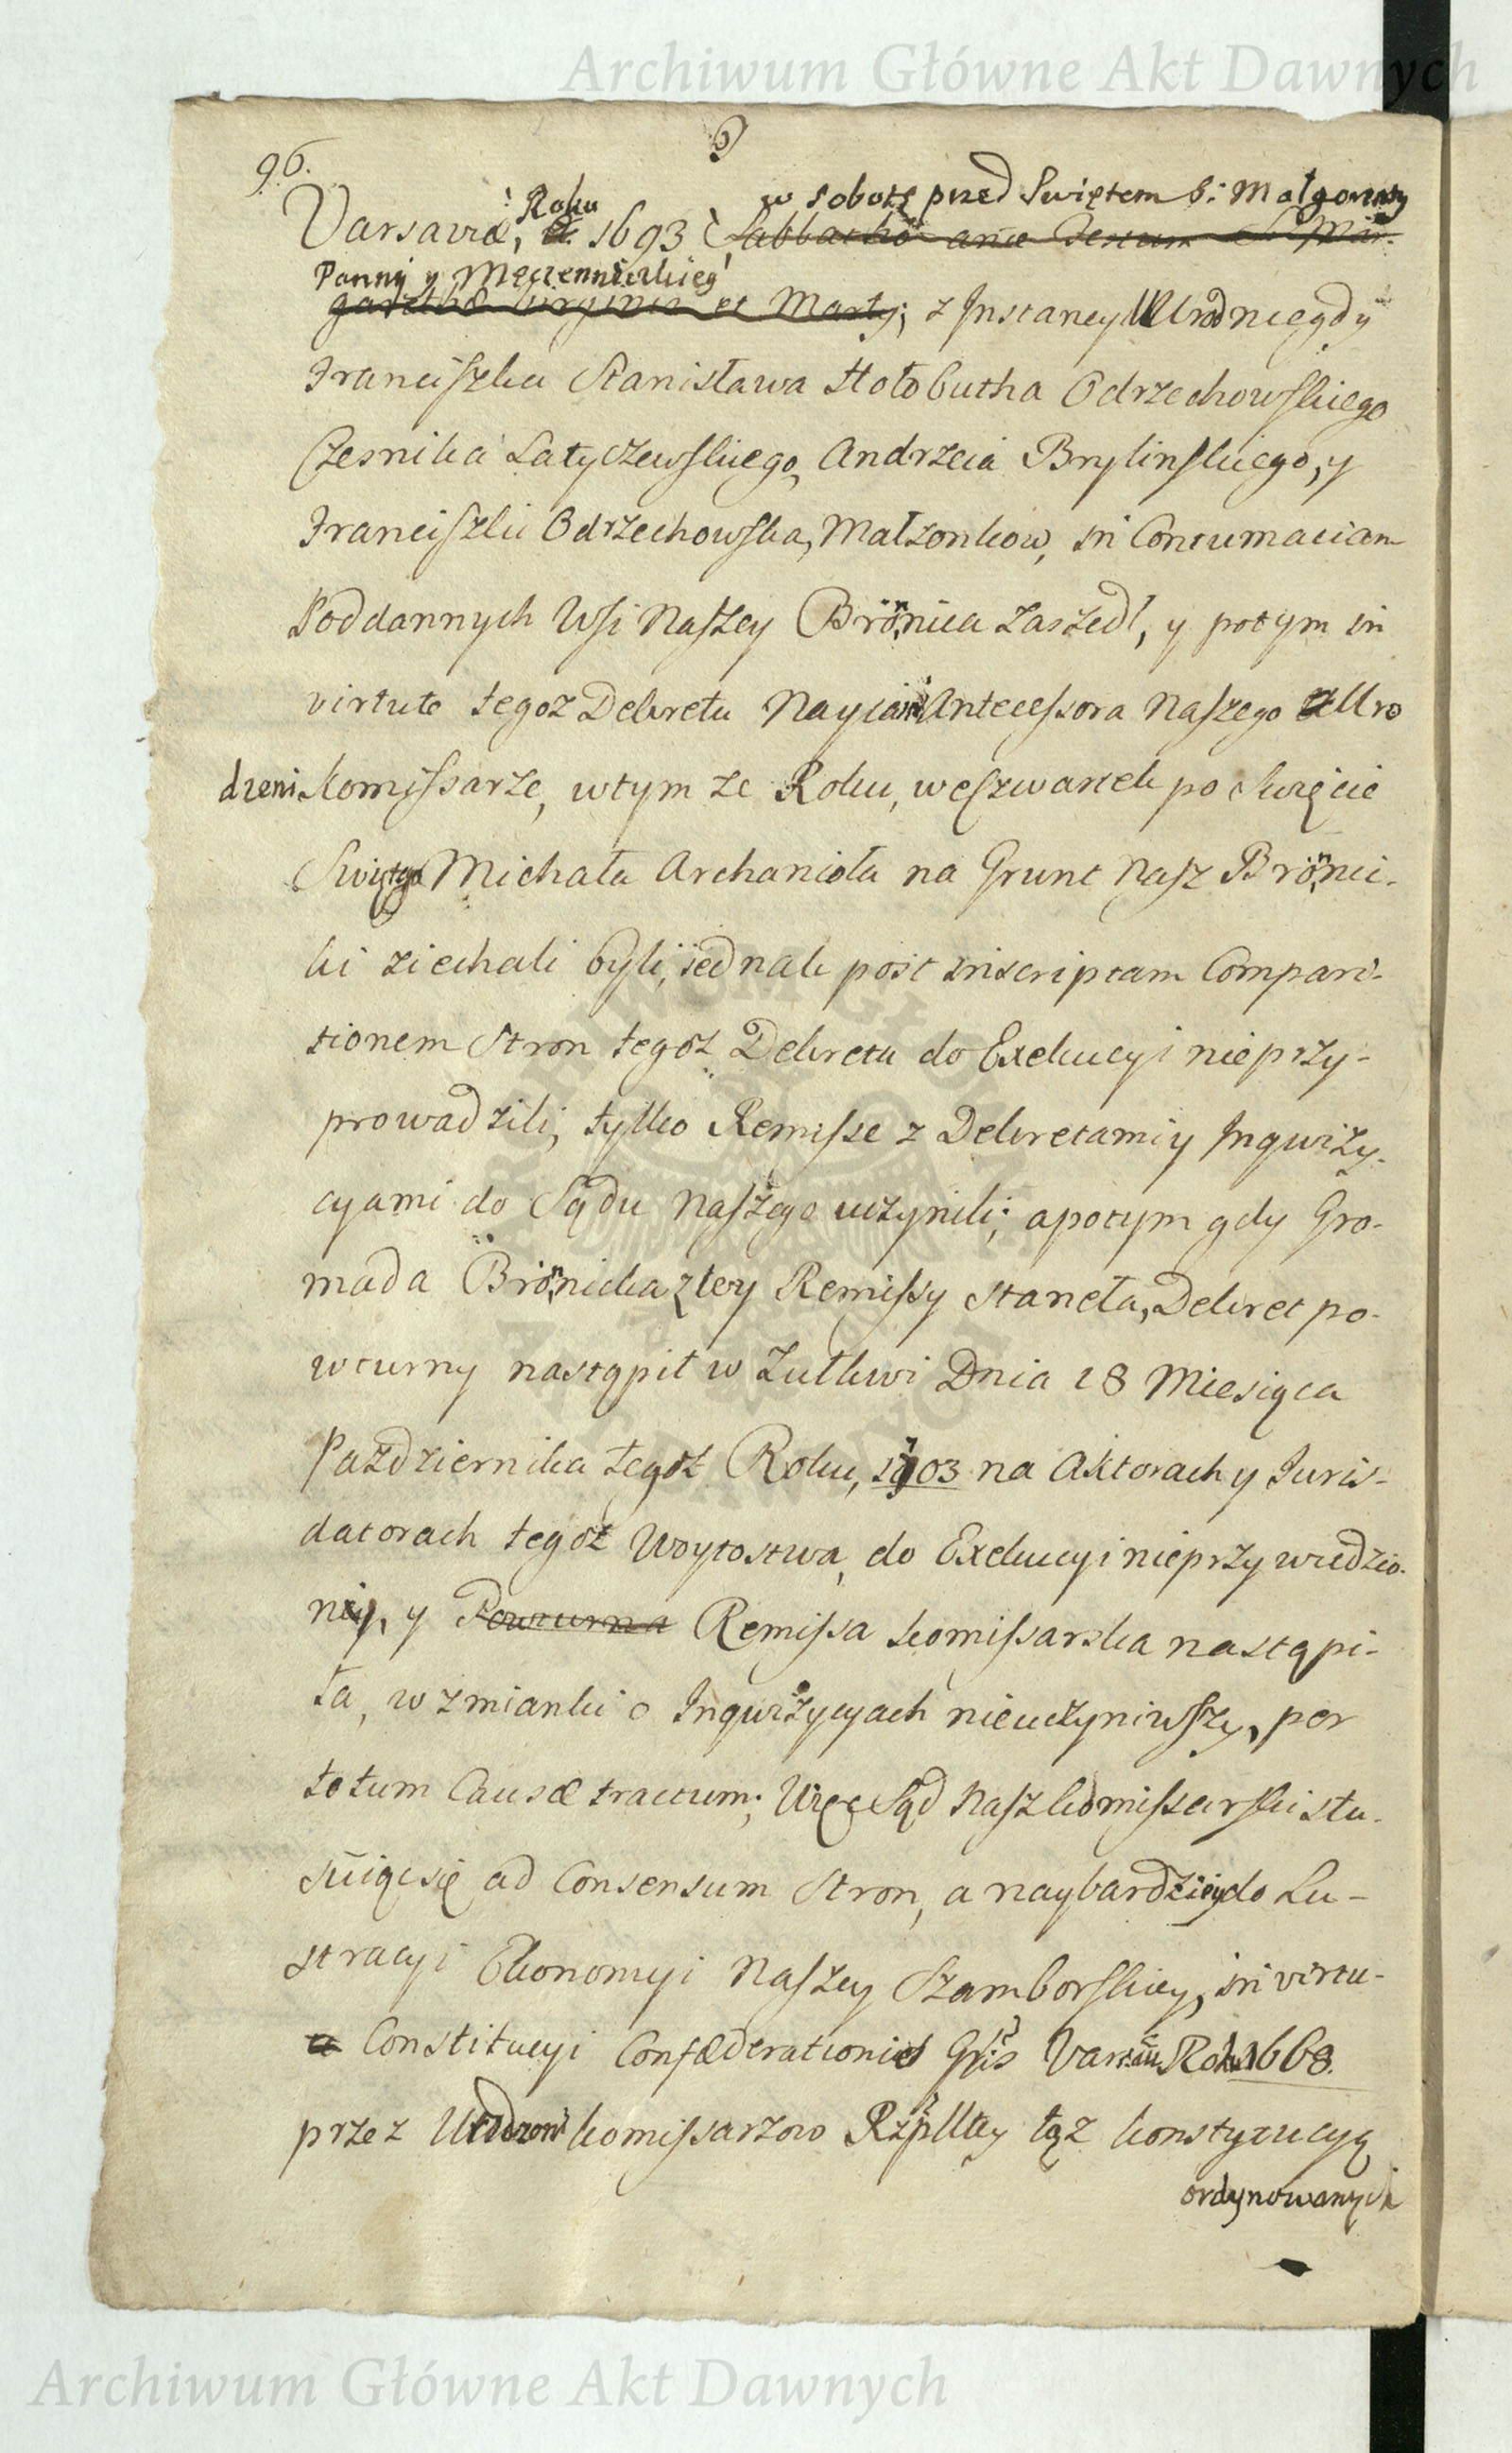 Archiwum Główne Akt Dawnych
96.
w sobotę przed Swiętem S: Małgorzaty
Roku
Varsaviæ, 1693 Sabbatho ante Festum S Mar-
Panny y Męczenniczkieg
garethæ Virginis et Marty; z Instancyi Urod niegdy
Franciszka Stanisława Hołobutha Odrzechowskiego
Czesnika Latyczewskiego, Andrzeia Brylinskiego, y
Franciszki Odrzechowska, Małzonkow, in Contumaciam
Poddannych Wsi Naszey Brönica zaszedł, y potym in
virtute tegoz Dekretu Nayiaśń Antecessora Naszego Uro
dzeni Komissarze, wtym ze Roku, weszwartek po Swięcie
Swiętego Michała Archanioła na Grunt Nasz Brönic-
ki ziechali byli, iednak post inscriptam Compari-
tionem Stron tegoż Dekretu do Exekucyi nieprzy-
prowadzili, tylko Remisse z Dekretami y Inqwizy-
cyami do Sądu Naszego uczynili; apotym gdy Gro-
mada Brönicka z tey Remissy staneła, Dekret po-
wturny nastąpił w Zułkwi Dnia 18 Miesiąca
Pazdziernika tegoż Roku, 1703 na Aktorach y Juris-
datorach tegoż Woytostwa, do Exekucyi nieprzywiedzio-
ny, y Powturna Remissa komissarska nastąpi-
ła, wzmianki o Inqwizycyach nieuczyniwszy, per
totum Causæ tractum; Więc Sąd Nasz komissarski stu-
suiąc się ad Consensum Stron, a naybardziey do Lu-
stracyi Ekonomyi Naszey Szamborskiey, in virtu-
Constitucyi Confæderationis Gñis Varsav Roku 1668.
przez Urodzon komissarzow Rzpltey tąż konstytucyą
ordynowanych
Archiwum Główne Akt Dawnych